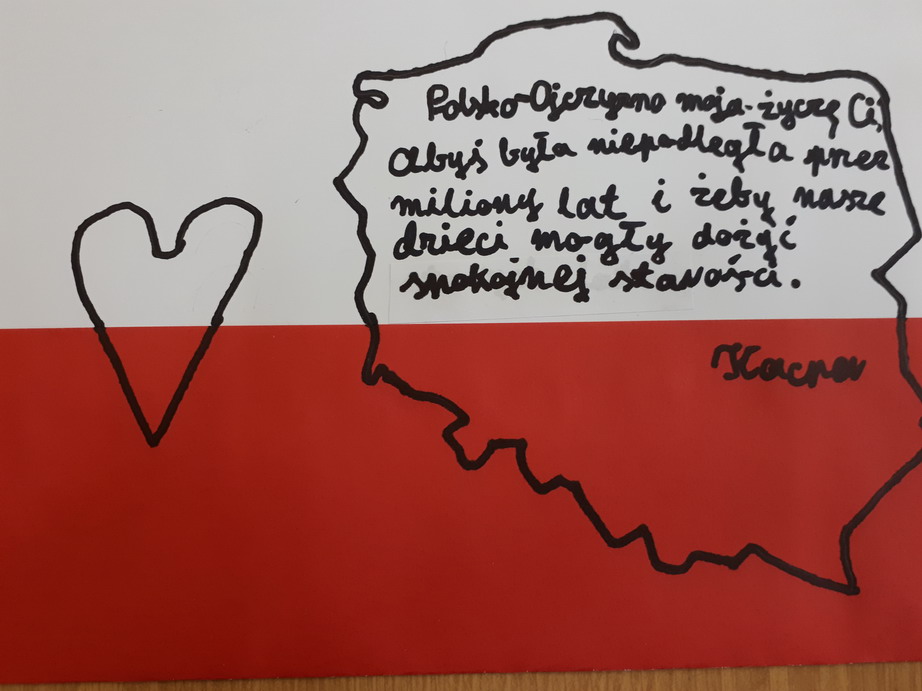 Polsko-Ojczyzno moja-życzę Ci,
abyś była niepodległa przez
miliony lat i żeby nasze
dzieci mogły dożyć
spokojnej starości.
Kacper